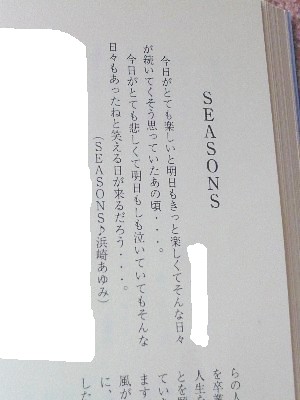 SEASONS
今日がとても楽しいと明日もきっと楽しくてそんな日々
が続いてくそう思っていたあの頃・・・。
今日がとても悲しくて明日もしも泣いていてもそんな
日々もあったねと笑える日が来るだろう・・・。
(SEASONS♪浜崎あゆみ)
らの人
を卒業
人生な
とを歌
ていた
ます
風が
に、
した